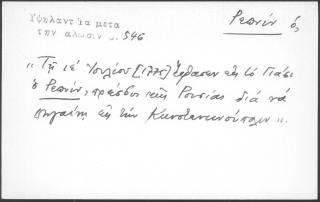 Υψηλαντ ία μετα
την αλωσιν σ. 546
Ρεπνίν ὁ,
"Τῇ ιέ Ἰουλίου [1775] ἔφθασεν εἰς τὸ Γιάσι
ὁ Ρεπνίν, πρέσβυς τῆς Ρουσίας διὰ νὰ
πηγαίνῃ εἰς τὴν Κωνσταντινούπολιν".